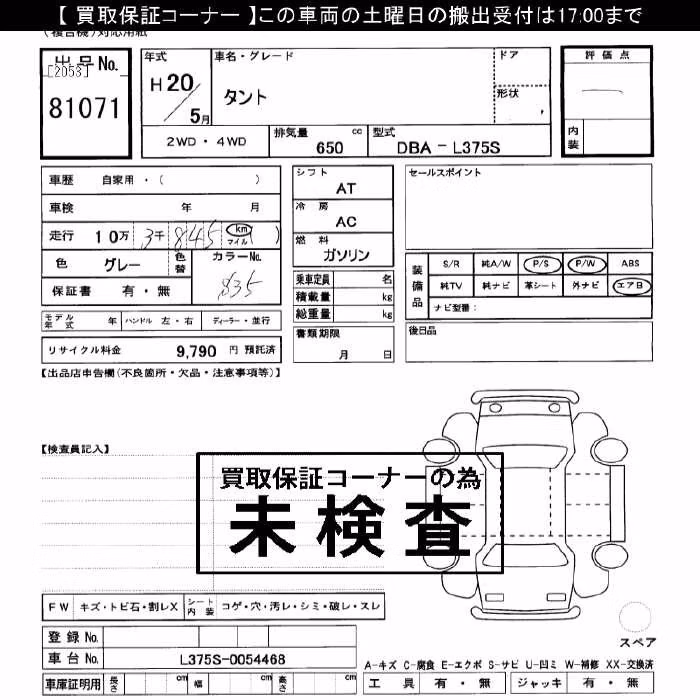 【 買取保証コーナー 】この車両の土曜日の搬出受付は17:00まで
出品No.
[2053]
81071
年式
H20/5月
車名・グレード
タント
ドア
形状
2WD・4WD
排気量 cc
650
型式
DBA-L375S
評価点
内装
車歴 自家用・( )
車検 年 月
走行 10万 3千845 km マイル ( )
色 グレー
色替
カラーNo.
835
保証書 有・無
モデル年式 年 ハンドル 左・右 ディーラー・並行
リサイクル料金 9,790 円 預託済
シフト
AT
冷房
AC
燃料
ガソリン
乗車定員 名
積載量 kg
総重量 kg
書類期限
月 日
セールスポイント
装備品
S/R 純A/W P/S P/W ABS
純TV 純ナビ 革シート 外ナビ エアB
ナビ型番:
後日品
【出品店申告欄(不良箇所・欠品・注意事項等)】
【検査員記入】
買取保証コーナーの為
未検査
FW キズ・トビ石・割レX シート内装 コゲ・穴・汚レ・シミ・破レ・スレ
登録No.
車台No. L375S-0054468
車庫証明用 長さ cm 幅 cm 高さ cm
スペア
A-キズ C-腐食 E-エクボ S-サビ U-凹ミ W-補修 XX-交換済
工具 有・無 ジャッキ 有・無